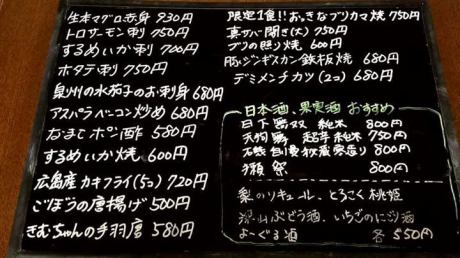 生本マグロ赤身 930円
トロサーモン刺 750円
するめいか刺 700円
ホタテ刺 750円
泉州の水茄子のお刺身 680円
アスパラベーコン炒め 680円
なまこポン酢 580円
するめいか焼 600円
広島産カキフライ(5コ) 720円
ごぼうの唐揚げ 500円
きむちゃんの手羽唐 580円
限定1食!!おっきなブリカマ焼 750円
真サバ開き(大) 750円
ブリの照り焼 600円
ジンギスカン鉄板焼 680円
デミメンチカツ(2コ) 680円
日本酒、果実酒 おすすめ
日下無双 純米 800円
天狗舞 超辛純米 750円
磯自慢 秘蔵寒造り 800円
獺祭 800円
梨のリキュール、とろこく桃姫
深山ぶどう酒、いちごのにごり酒
よーぐる酒 各550円